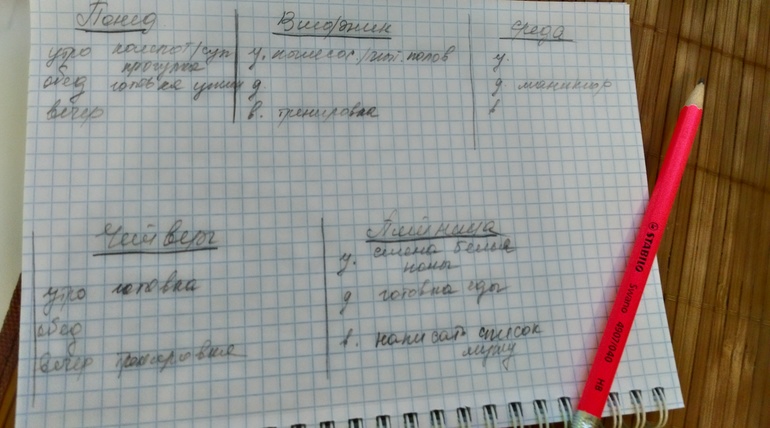 Понед
утро компот/суп
прогулка
обед готовка ужин
вечер
Вторник
у. /чит. полов
д.
в. тренировка
Среда
у.
д. маникюр
в
Четверг
утро готовка
обед
вечер тренировка
Пятница
у. смена белья
д готовка еды
в. написать список
мужу
STABILO Swano 4907/040 HB